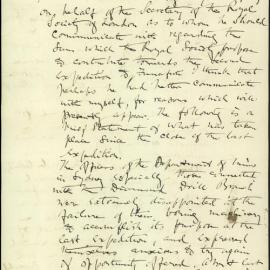 on behalf of the Secretary of the Royal
Society of London as to whom he should
communicate with regarding the
sum which the Royal Society propose
to contribute towards the second
expedition to Funafuti I think that
perhaps he had better communicate
with myself, for reasons which will
presently appear. The following is a
brief statement of what has taken
place since the close of the last
expedition.
The officers of the Department of Mines
in Sydney especially those connected
with the Diamond Drill Branch
was extremely disappointed at the
failure of their boring machinery
to accomplish its purpose at the
last expedition, and expressed
anxious to try again
if opportunity offered, about last